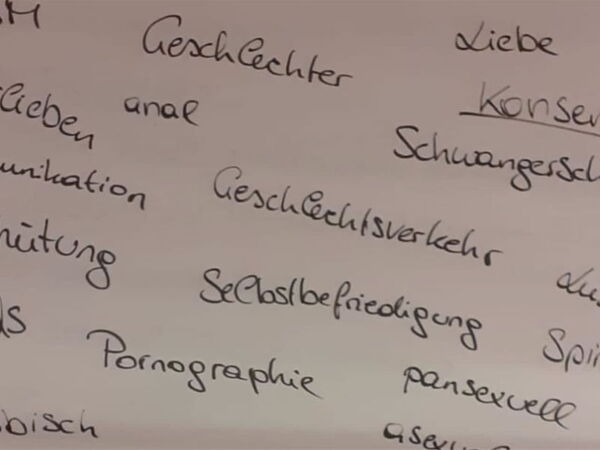 Geschlechter Liebe
lieben anal Konsen
Schwangersch
unikation Geschlechtsverkehr Lus
hütung Selbstbefriedigung Spi
ds Pornographie pansexuell
bisch asexu